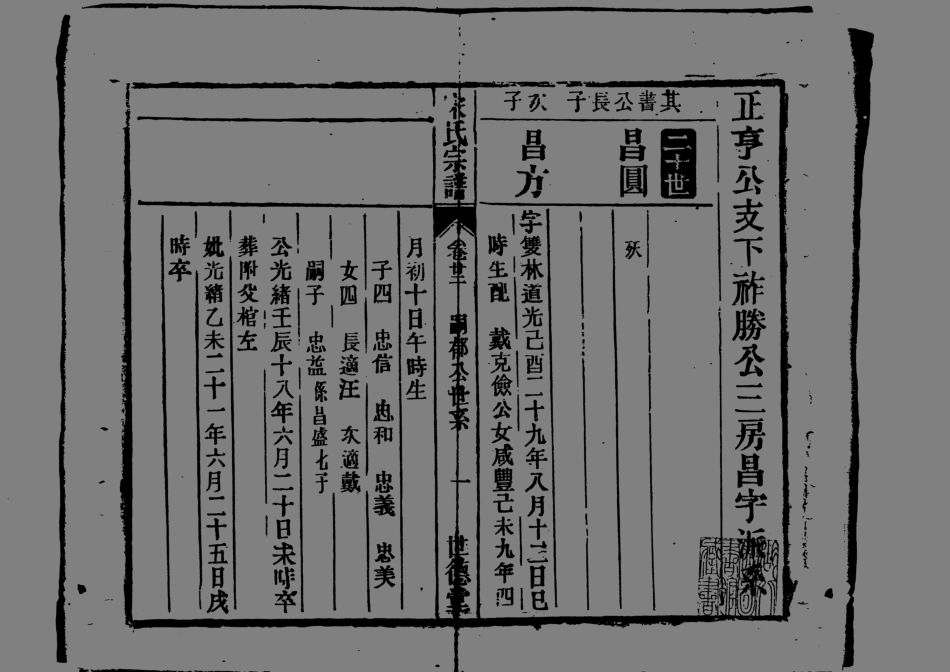 正亨公支下祚勝公三房昌字派系
二十世
其書公長子
昌圓
殀
次子
昌方
字雙林道光己酉二十九年八月十三日巳
時生配 戴克儉公女咸豐己未九年四
氏宗譜 卷廿二 嗣郁公世系 一 世德堂
月初十日午時生
子四 忠信 忠和 忠義 忠美
女四 長適汪 次適戴
嗣子 忠益係昌盛七子
公光緒壬辰十八年六月二十日未時卒
葬附父棺左
妣光緒乙未二十一年六月二十五日戌
時卒